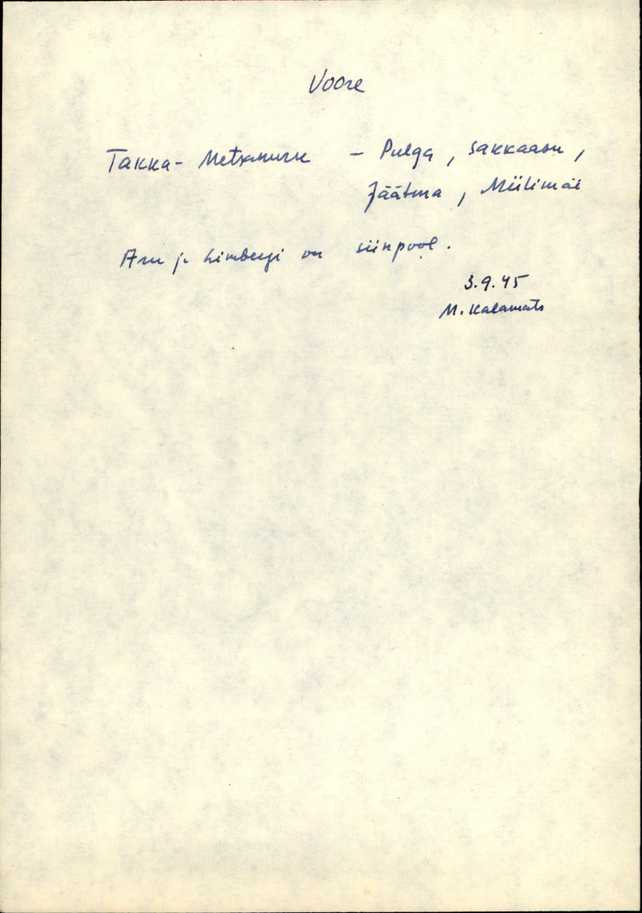 Voore
Takka- Metsanurk – Pulga, Sakkaasu,
Jäätma, Miilimäe
Aru ja Limbergi on siinpool.
3.9.45
M. Kalamats